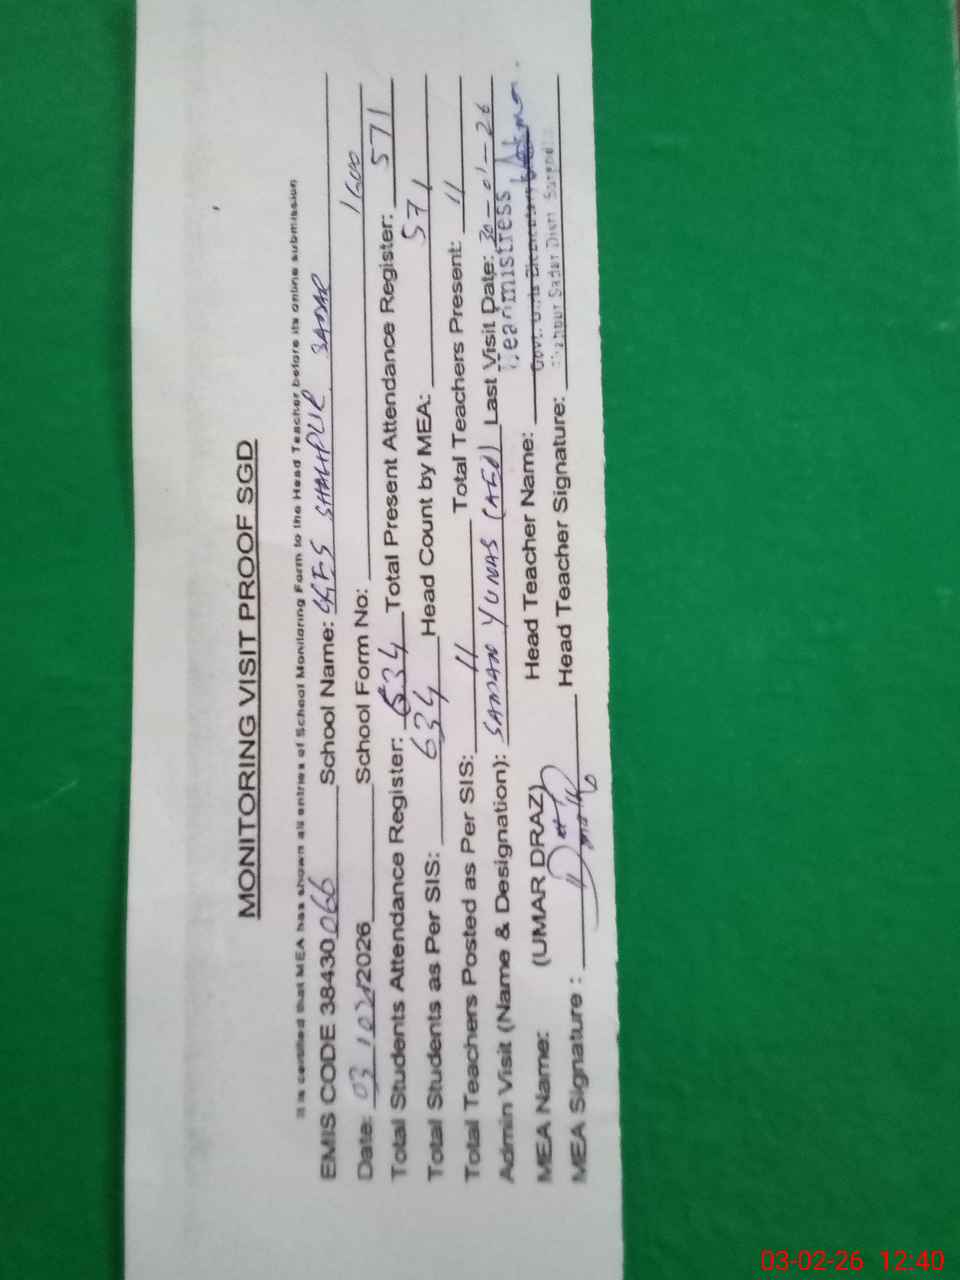 MONITORING VISIT PROOF SGD
It is certified that MEA has shown all entries of School Monitoring Form to the Head Teacher before its online submission
EMIS CODE 38430066 School Name: GGES SHAHPUR SADAR
Date: 03/02/2026 School Form No: 1600
Total Students Attendance Register: 634 Total Present Attendance Register: 571
Total Students as Per SIS: 634 Head Count by MEA: 571
Total Teachers Posted as Per SIS: 11 Total Teachers Present: 11
Admin Visit (Name & Designation): SAMAN YUNAS (AEO) Last Visit Date: 30-01-26
Headmistress
MEA Name: (UMAR DRAZ) Head Teacher Name: Govt. Girls Elementary
MEA Signature : Head Teacher Signature: Shahpur Sadar Distt Sargodha
03-02-26 12:40